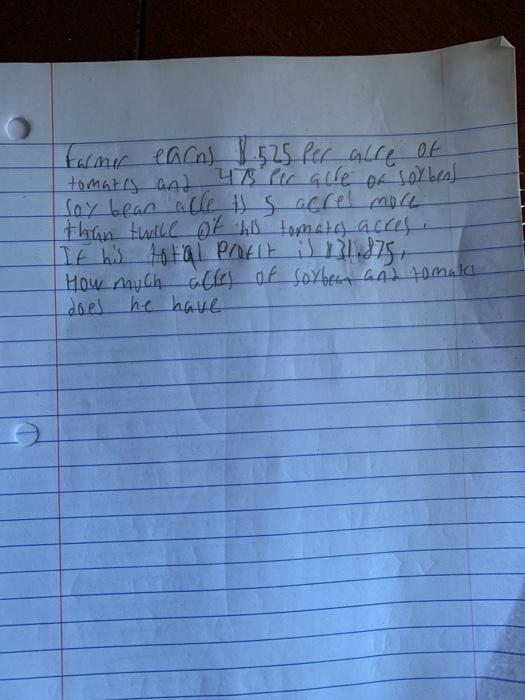 Farmer earns $.525 Per acre of
tomatos and 475 Per acre of soybens
Soy bean acre is 5 acres more
than twice of his tomatos acres.
If his total Profit is $31.875,
How much acres of soybean and tomatos
does he have